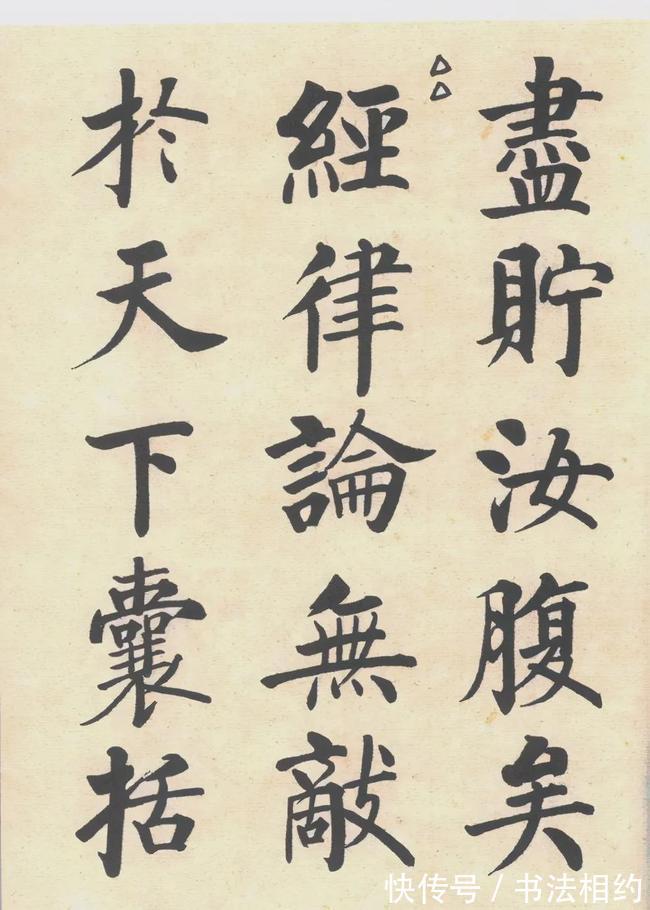 盡貯汝腹矣
經律論無敵
於天下囊括
快传号 / 书法相约